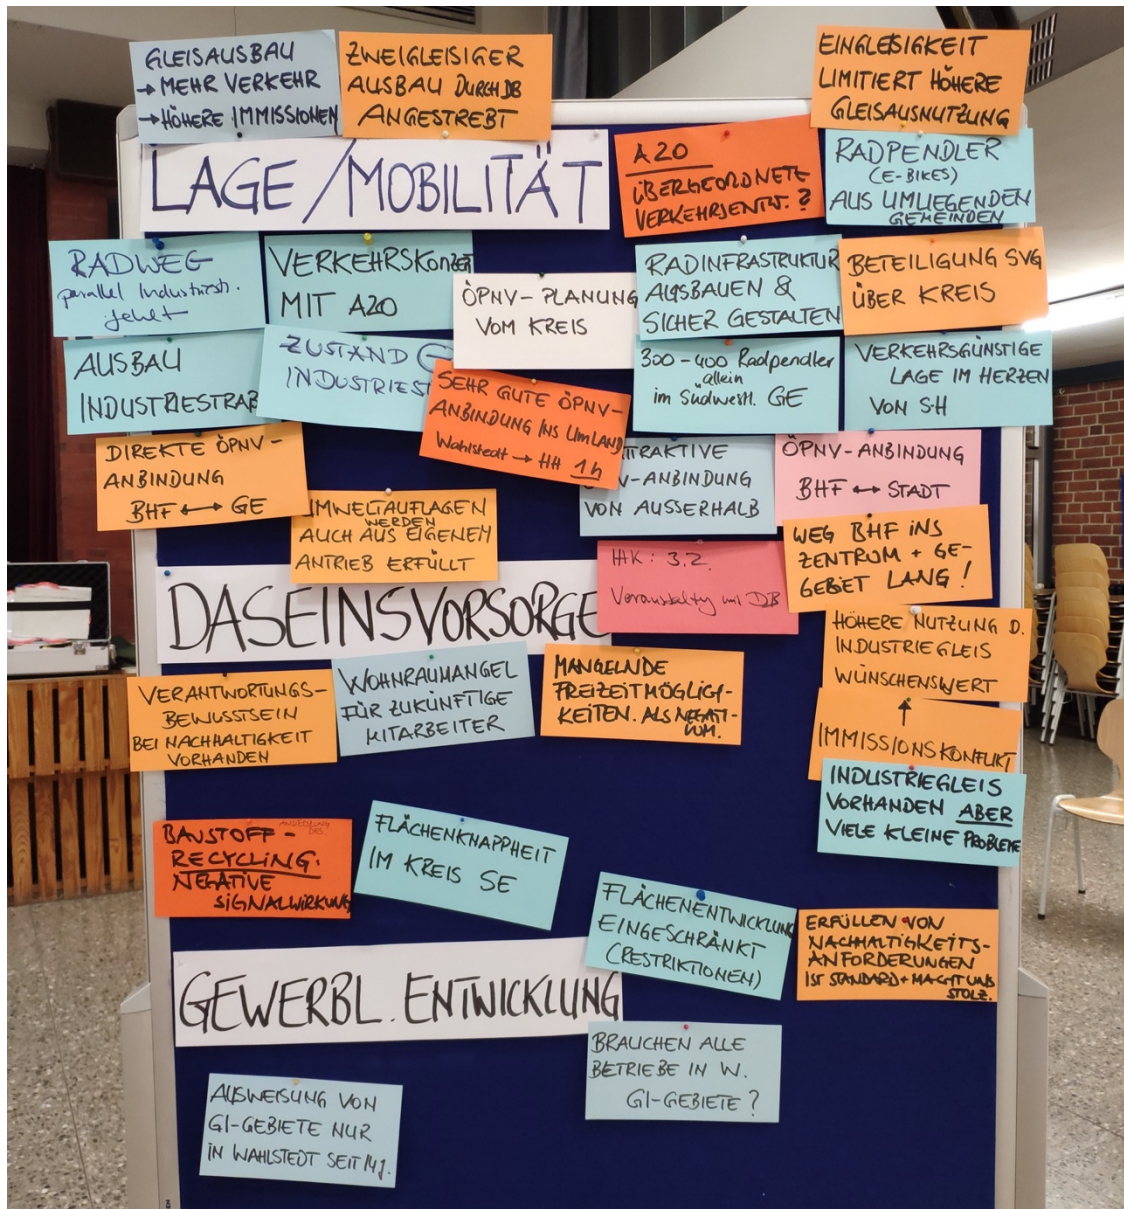 GLEISAUSBAU
→ MEHR VERKEHR
→ HÖHERE IMMISSIONEN
ZWEIGLEISIGER
AUSBAU DURCH DB
ANGESTREBT
EINGLEISIGKEIT
LIMITIERT HÖHERE
GLEISAUSNUTZUNG
LAGE/MOBILITÄT
A20
ÜBERGEORDNETE
VERKEHRSENTW.?
RADPENDLER
(E-BIKES)
AUS UMLIEGENDEN
GEMEINDEN
RADWEG
parallel Industriestr.
fehlt
VERKEHRSKONZEPT
MIT A20
ÖPNV-PLANUNG
VOM KREIS
RADINFRASTRUKTUR
AUSBAUEN &
SICHER GESTALTEN
BETEILIGUNG SVG
ÜBER KREIS
AUSBAU
INDUSTRIESTRAß
ZUSTAND
INDUSTRIEST
SEHR GUTE ÖPNV-
ANBINDUNG INS UMLAND
Wahlstedt → HH 1h
300-400 Radpendler
allein
im Südwestl. GE
VERKEHRSGÜNSTIGE
LAGE IM HERZEN
VON S-H
DIREKTE ÖPNV-
ANBINDUNG
BHF ↔ GE
UMWELTAUFLAGEN
WERDEN
AUCH AUS EIGENEM
ANTRIEB ERFÜLLT
TRAKTIVE
V-ANBINDUNG
VON AUSSERHALB
ÖPNV-ANBINDUNG
BHF ↔ STADT
WEG BHF INS
ZENTRUM + GE-
GEBIET LANG!
IHK: 3.2.
Veranstaltg mit DB
DASEINSVORSORGE
VERANTWORTUNGS-
BEWUSSTSEIN
BEI NACHHALTIGKEIT
VORHANDEN
WOHNRAUMANGEL
FÜR ZUKÜNFTIGE
MITARBEITER
MANGELNDE
FREIZEITMÖGLICH-
KEITEN. ALS NEGATI-
VUM.
HÖHERE NUTZUNG D.
INDUSTRIEGLEIS
WÜNSCHENSWERT
↑
IMMISSIONSKONFLIKT
INDUSTRIEGLEIS
VORHANDEN ABER
VIELE KLEINE PROBLEME
BAUSTOFF-
RECYCLING.
NEGATIVE
SIGNALWIRKUNG
FLÄCHENKNAPPHEIT
IM KREIS SE
FLÄCHENENTWICKLUNG
EINGESCHRÄNKT
(RESTRIKTIONEN)
ERFÜLLEN VON
NACHHALTIGKEITS-
ANFORDERUNGEN
IST STANDARD + MACHT UNS
STOLZ.
GEWERBL. ENTWICKLUNG
BRAUCHEN ALLE
BETRIEBE IN W.
GI-GEBIETE?
AUSWEISUNG VON
GI-GEBIETE NUR
IN WAHLSTEDT SEIT 14J.